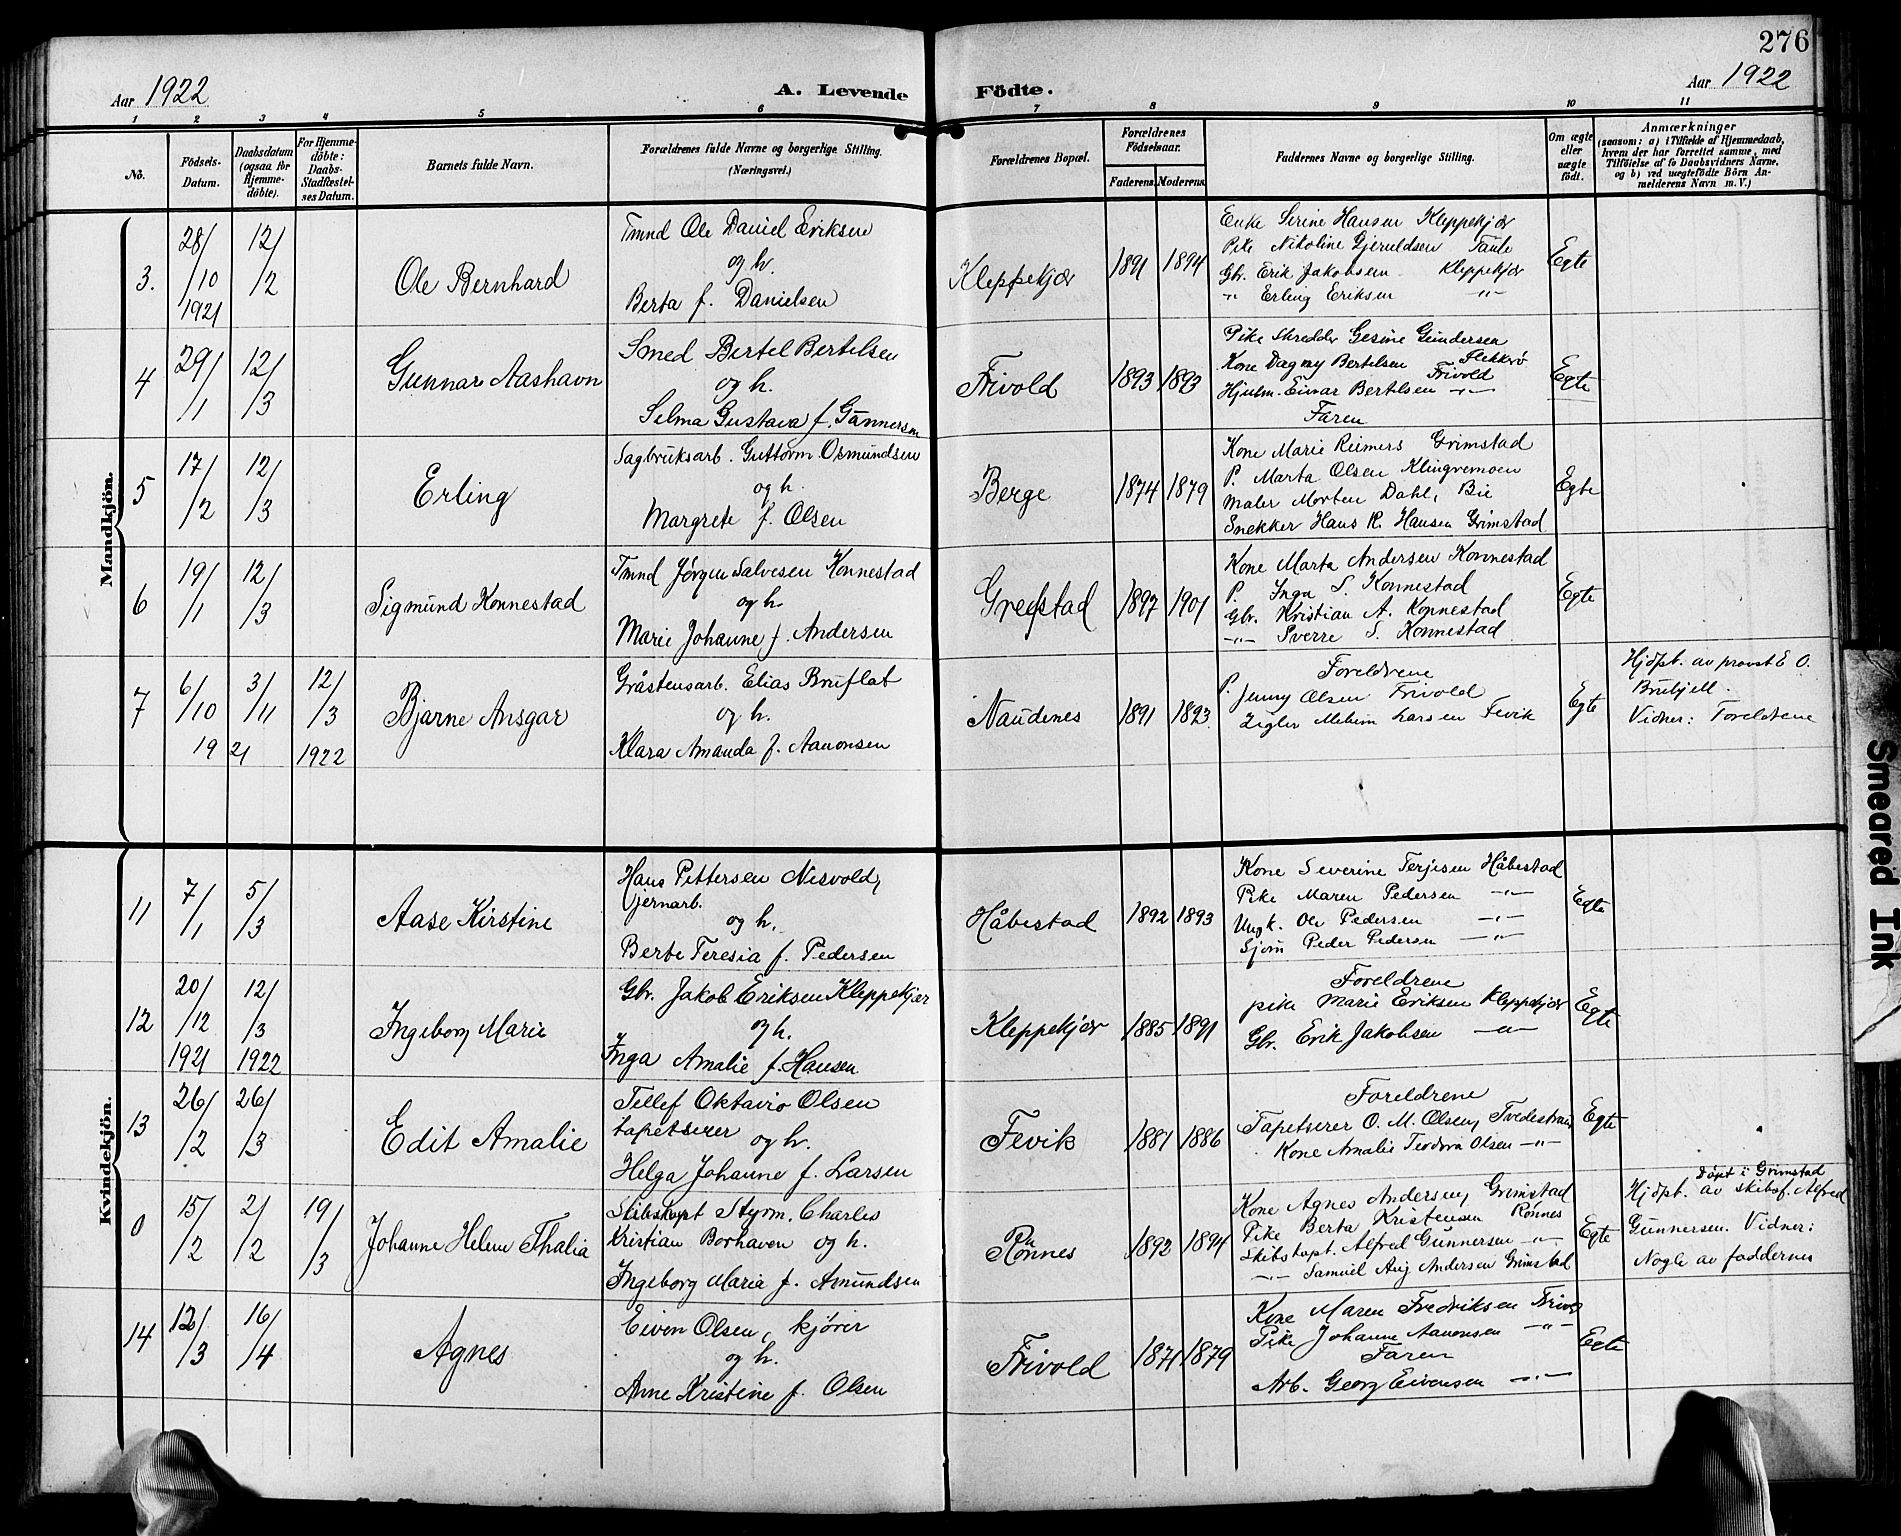 276
Aar 1922
A. Levende Födte.
Aar 1922
1 2 3 4 5 6 7 8 9 10 11
No.
Födsels-Datum.
Daabsdatum (ogsaa for Hjemme-döbte).
For Hjemme-döbte: Daabs-Stadfæstel-ses Datum.
Barnets fulde Navn.
Forældrenes fulde Navne og borgerlige Stilling. (Næringsvei.)
Forældrenes Bopæl.
Forældrenes Födselsaar.
Faderens. Moderens.
Faddernes Navne og borgerlige Stilling.
Om ægte eller uægte födt.
Anmærkninger
(saasom: a) i Tilfælde af Hjemmedaab, hvem der har forrettet samme, med Tilföielse af to Daabsvidners Navne, og b) ved uægtefödte Börn An-melderens Navn m. V.)
Mandkjön.
3. 28/10 1921 12/2 Ole Bernhard
Tmnd Ole Daniel Eriksen
og h.
Berta f. Danielsen
Kleppekjær 1891 1894
Enke Serine Hansen Kleppekjær
Pike Nikoline Gjeruldsen Taule
Gbr. Erik Jakobsen Kleppekjær
" Erling Eriksen -"-
Egte
4 29/1 12/3 Gunnar Aashavn
Smed Bertel Bertelsen
og h.
Selma Gustava f. Gunnersen
Frivold 1893 1893
Pike Skredder Gesine Gundersen
Flekkerø
Kone Dagny Bertelsen Frivold
Hjulm. Einar Bertelsen -"-
Faren
Egte
5 17/2 12/3 Erling
Sagbruksarb. Guttorm Osmundsen
og h.
Margrete f. Olsen
Berge 1874 1879
Kone Marie Reimers Grimstad
P. Marta Olsen Klingremoen
Maler Morten Dahl, Bie
Snekker Hans R. Hansen Grimstad
Egte
6 19/1 12/3 Sigmund Konnestad
Tmnd Jørgen Salvesen Konnestad
og h.
Marie Johanne f. Andersen
Grefstad 1897 1901
Kone Marta Andersen Konnestad
P. Inga S. Konnestad
Gbr. Kristian A. Konnestad
-"- Sverre S. Konnestad
Egte
7 6/10 3/11 1921 12/3 1922 Bjarne Ansgar
Gråstensarb. Elias Bruflat
og h.
Klara Amanda f. Aanonsen
Naudenes 1891 1893
Foreldrene
P. Jenny Olsen Frivold
Larsen Fevik
Egte
Hjdpt. av provst E O.
Vidner: Foreldrene
Kvindekjön.
11 7/1 5/3 Aase Kirstine
Hans Pettersen Nesvold,
jernarb.
og h.
Berte Teresia f. Pedersen
Håbestad 1892 1893
Kone Severine Terjesen Håbestad
Pike Maren Pedersen -"-
Ungk. Ole Pedersen -"-
Sjøm Peder Pedersen -"-
Egte
12 20/12 1921 12/3 1922 Ingeborg Marie
Gbr. Jakob Eriksen Kleppekjær
og h.
Inga Amalie f. Hansen
Kleppekjær 1885 1891
Foreldrene
pike Marie Eriksen Kleppekjær
Gbr. Erik Jakobsen -"-
Egte
13 26/2 26/3 Edit Amalie
Tellef Oktavio Olsen
tapetserer og h.
Helga Johanne f. Larsen
Fevik 1881 1886
Foreldrene
Tapetserer O. M. Olsen, Tvedestrand
Kone Amalie Teodora Olsen -"-
Egte
0 15/2 2/2 19/3 Johanne Helene Thalia
Skibskapt Styrm. Charles
Kristian Borhaven og h.
Ingeborg Maria f. Amundsen
Rønnes 1892 1894
Kone Agnes Andersen, Grimstad
Pike Berta Kristensen Rønnes
Skibskapt. Alfred Gunnersen -"-
-"- Samuel Aug Andersen Grimstad
Egte
Døpt i Grimstad
Hjdpt. av skibsf. Alfred
Gunnersen. Vidner:
Nogle av fadderne
14 12/3 16/4 Agnes
Eivin Olsen, kjører
og h.
Anne Kristine f. Olsen
Frivold 1871 1879
Kone Maren Fredriksen Frivold
Pike Johanne Aanonsen -"-
Faren
Arb. Georg Eivensen -"-
Egte
Smeared Ink